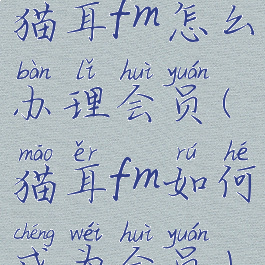 猫耳fm怎么
bàn lǐ huì yuán
办理会员(
māo ěr rú hé
猫耳fm如何
chéng wéi huì yuán
成为会员)